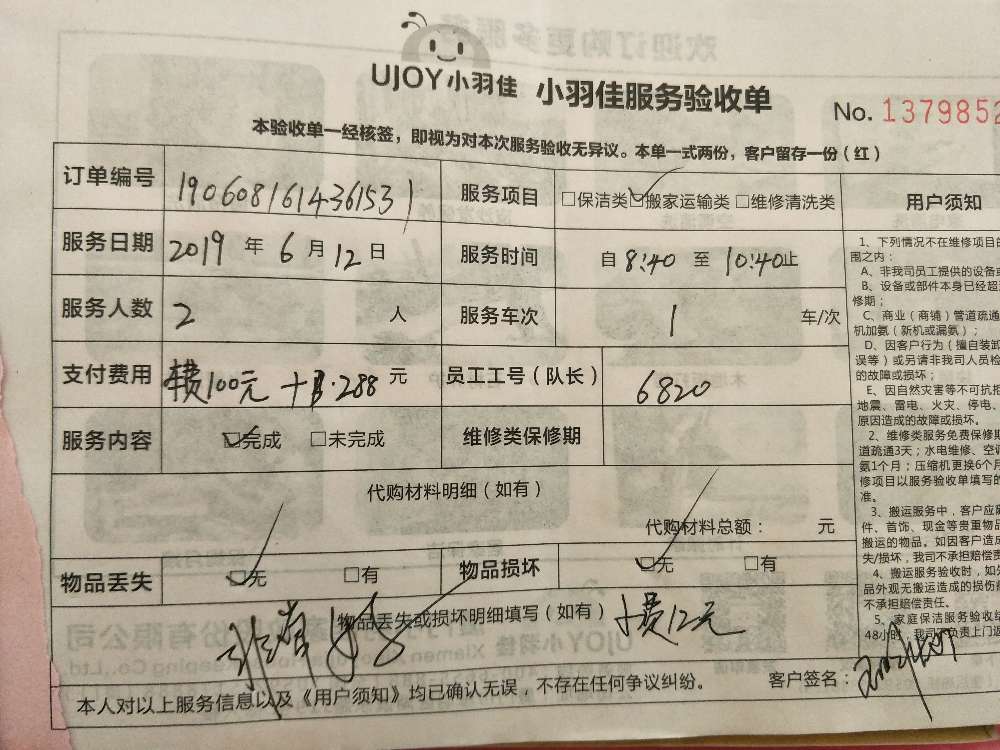 UJOY小羽佳 小羽佳服务验收单
No. 1379852
本验收单一经核签，即视为对本次服务验收无异议。本单一式两份，客户留存一份（红）
订单编号 190608161436153 服务项目 □保洁类 ☑搬家运输类 □维修清洗类
服务日期 2019 年 6 月 12 日 服务时间 自 8:40 至 10:40 止
服务人数 2 人 服务车次 1 车/次
支付费用 100元 + 288 元 员工工号（队长） 6820
服务内容 ☑完成 □未完成 维修类保修期
代购材料明细（如有）
代购材料总额： 元
物品丢失 ☑无 □有 物品损坏 ☑无 □有
物品丢失或损坏明细填写（如有） 费12元
本人对以上服务信息以及《用户须知》均已确认无误，不存在任何争议纠纷。 客户签名：
用户须知
1、下列情况不在维修项目
围之内：
A、非我司员工提供的设备
B、设备或部件本身已经超
修期；
C、商业（商铺）管道疏通
机加氨（新机或漏氨）；
D、因客户行为（擅自装卸
误等）或另请非我司人员检
的故障或损坏；
E、因自然灾害等不可抗
地震、雷电、火灾、停电、
原因造成的故障或损坏。
2、维修类服务免费保修期
道疏通3天；水电维修、空
氨1个月；压缩机更换6个月
修项目以服务验收单填写的
准。
3、搬运服务中，客户应
件、首饰、现金等贵重物品
搬运的物品。如因客户造成
失/损坏，我司不承担赔偿责
4、搬运服务验收时，如
品外观无搬运造成的损伤
不承担赔偿责任。
5、家庭保洁服务验收结
48小时，我司不负责上门